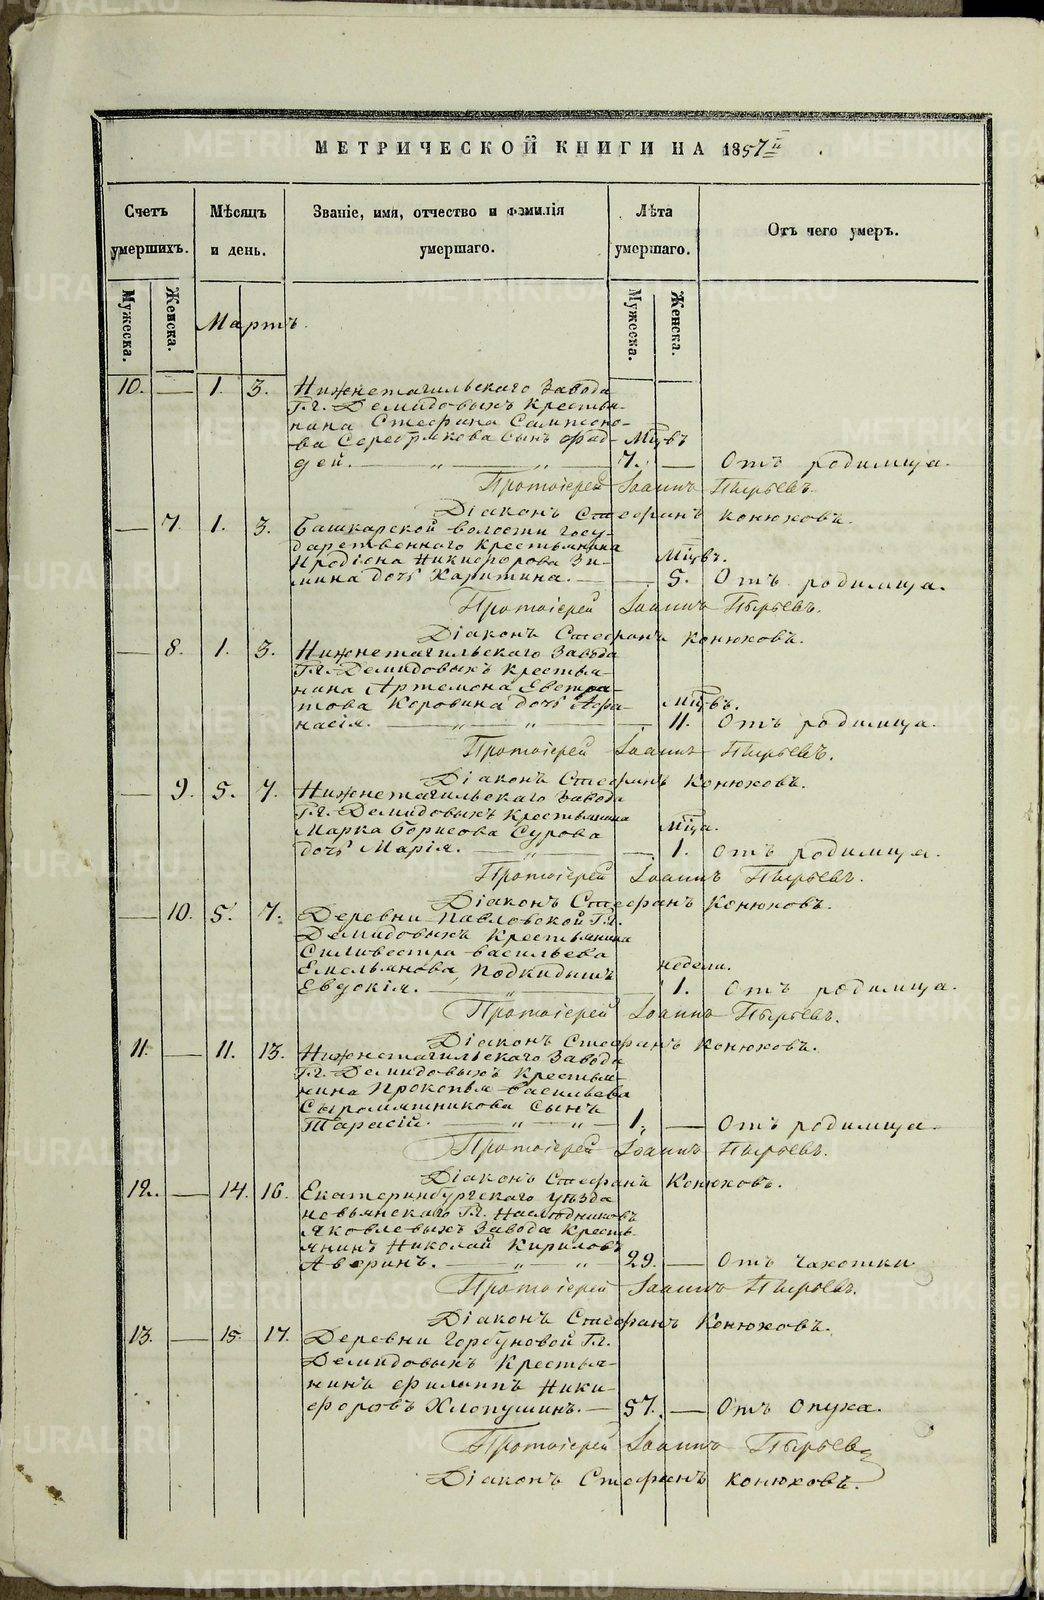 МЕТРИЧЕСКОЙ КНИГИ НА 1857й
Счетъ умершихъ.
Мѣсяцъ и день.
Званіе, имя, отчество и фамилія умершаго.
Лѣта умершаго.
Отъ чего умеръ.
Мужеска.
Женска.
Мартъ.
Мужеска.
Женска.
10. — 1. 3. Нижнетагильскаго Завода
Гг. Демидовыхъ Крестья-
нина Стефана Сампсоно-
ва Серебрякова сынъ Фад- Мцвъ
дей. — „ — „ — 7. — Отъ родимца.
Протоіерей Іоаннъ Пырьевъ.
Діаконъ Стефанъ Конюховъ.
— 7. 1. 3. Башкарской волости Госу-
дарственнаго Крестьянина
Иродіона Никифорова Зи- Мцвъ.
мина дочь Харитина. — 5. Отъ родимца.
Протоіерей Іоаннъ Пырьевъ.
Діаконъ Стефанъ Конюховъ.
— 8. 1. 3. Нижнетагильскаго Завода
Гг. Демидовыхъ Крестья-
нина Артемона Евстра-
това Коровина дочь Афа- Мцвъ.
насія. — „ — „ — 11. Отъ родимца.
Протоіерей Іоаннъ Пырьевъ.
Діаконъ Стефанъ Конюховъ.
— 9. 5. 7. Нижнетагильскаго Завода
Гг. Демидовыхъ Крестьянина
Марка Борисова Сурова Мца.
дочь Марія. — „ — 1. Отъ родимца.
Протоіерей Іоаннъ Пырьевъ.
Діаконъ Стефанъ Конюховъ.
— 10. 5. 7. Деревни Павловской Гг.
Демидовыхъ Крестьянина
Силивестра Васильева
Емельянова, Подкидышъ недели.
Евдокія. — „ — 1. Отъ родимца.
Протоіерей Іоаннъ Пырьевъ.
Діаконъ Стефанъ Конюховъ.
11. — 11. 13. Нижнетагильскаго Завода
Гг. Демидовыхъ Крестья-
нина Прокопья Васильева
Сыромятникова сынъ
Тарасій. — „ — „ — 1. — Отъ родимца.
Протоіерей Іоаннъ Пырьевъ.
Діаконъ Стефанъ Конюховъ.
12. — 14. 16. Екатеринбургскаго уѣзда
невьянскаго Гг. Наслѣдниковъ
Яковлевыхъ Завода Кресть-
янинъ Николай Кириловъ
Аверинъ. — „ — „ — 29. — Отъ чахотки
Протоіерей Іоаннъ Пырьевъ.
Діаконъ Стефанъ Конюховъ.
13. — 15. 17. Деревни Горбуновой Гг.
Демидовыхъ Крестья-
нинъ Филиппъ Ники-
форовъ Хлопушинъ. — 57. — Отъ Опуха.
Протоіерей Іоаннъ Пырьевъ
Діаконъ Стефанъ Конюховъ.
METRIKI.GASO-URAL.RU